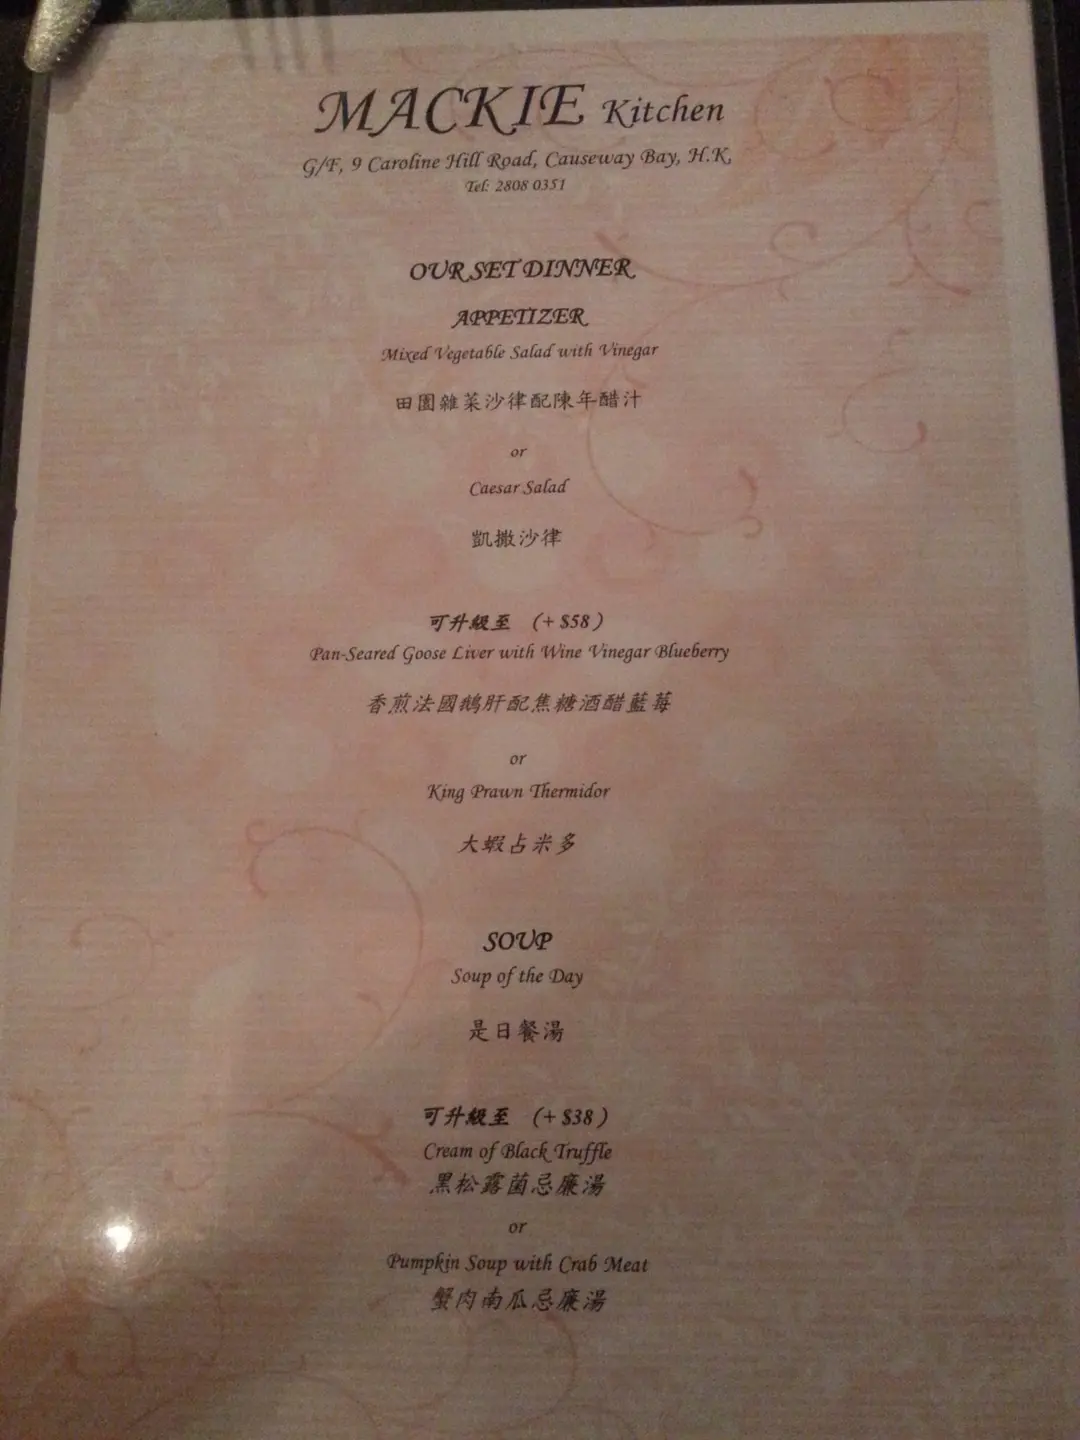 MACKIE Kitchen
G/F, 9 Caroline Hill Road, Causeway Bay, H.K,
Tel: 2808 0351
OUR SET DINNER
APPETIZER
Mixed Vegetable Salad with Vinegar
田園雜菜沙律配陳年醋汁
or
Caesar Salad
凱撒沙律
可升級至 (+ $58)
Pan-Seared Goose Liver with Wine Vinegar Blueberry
香煎法國鵝肝配焦糖酒醋藍莓
or
King Prawn Thermidor
大蝦占米多
SOUP
Soup of the Day
是日餐湯
可升級至 (+ $38)
Cream of Black Truffle
黑松露菌忌廉湯
or
Pumpkin Soup with Crab Meat
蟹肉南瓜忌廉湯